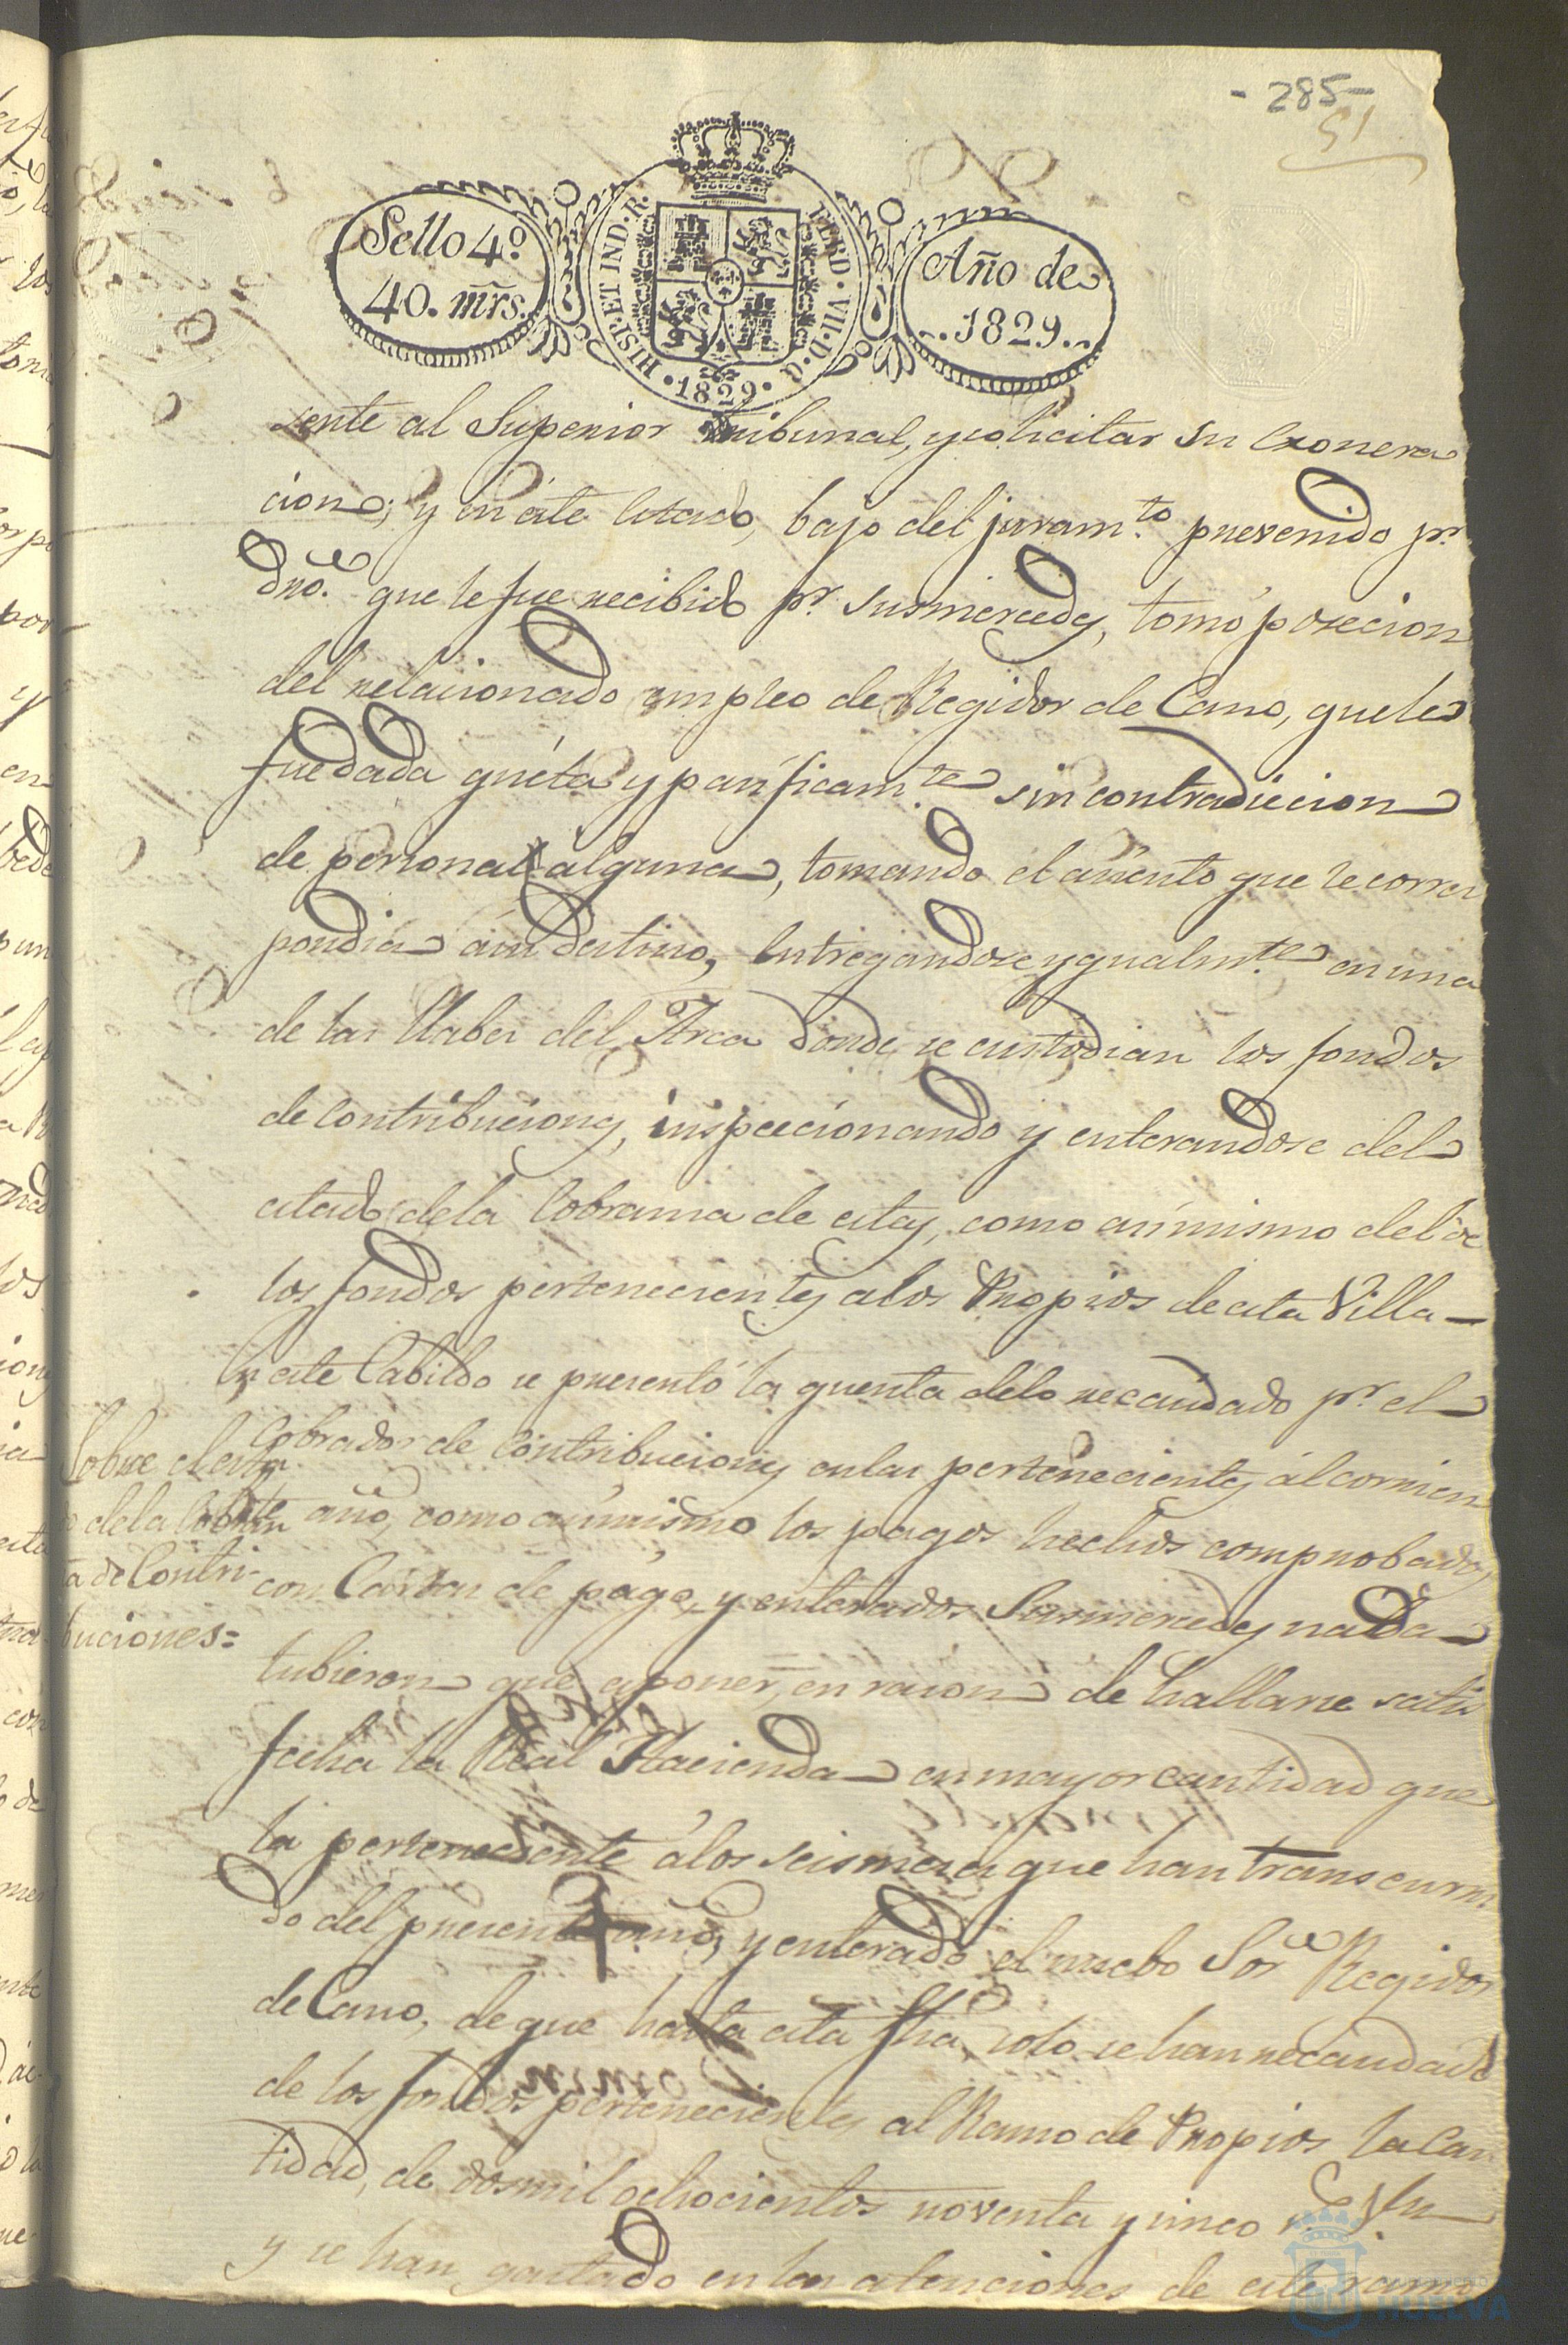 - 285 -
51
Sello 4º
40. mrs.
HISP. ET IND. R.
FERD. VII. D. G.
1829
Año de
1829
sente al Superior Tribunal, y solicitar su Exonera
cion; y en este estado, bajo del juram.to prevenido pr.
dro. que le fue recibido pr. susmercedes, tomó posecion
del relacionado empleo de Regidor de Cano, que le
fue dada quieta y pacificam.te sin contradiccion
de persona alguna, tomando el asiento que le corres
pondia á su destino, Entregandose ygualm.te en una
de las llabes del Arca donde se custodian los fondos
de Contribuciones, inspeccionando y enterandose del
estado de la Cobranza de estas, como asimismo del de
los fondos pertenecientes a los Propios de esta Villa
En este Cabildo se presentó la quenta de lo recaudado pr. el
Cobrador de Contribuciones en las pertenecientes al corrien
te año, como asimismo los pagos hechos comprobados,
con Cartas de pago, y enterados Susmercedes nada
tubieron que oponer, en razon de hallarse satis
fecha la Real Hacienda en mayor cantidad que
la perteneciente á los seis meses que han transcurri
do del presente año, y enterado el nuebo Sor. Regidor
de Cano, de que hasta esta fha, solo se han recaudado
de los fondos pertenecientes al Ramo de Propios la Can
tidad, de dos mil ochocientos noventa y cinco r.s Vn
y se han gastado en las atenciones de este ramo
Sobre el esta
do de la Cobran
za de Contri-
buciones=
HUELVA